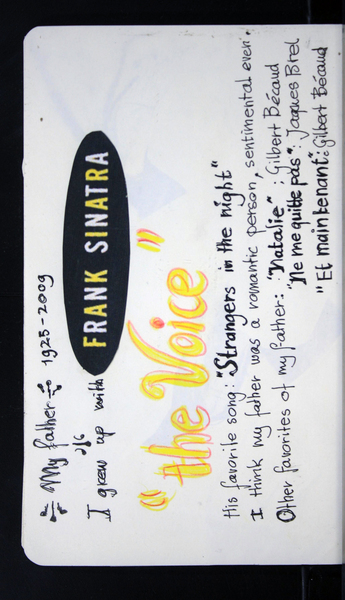 My father 1925-2009
I grew up with FRANK SINATRA
"the Voice"
His favorite song: "Strangers in the night"
I think my father was a romantic person, sentimental even.
Other favorites of my father: "Natalie": Gilbert Bécaud
"Ne me quitte pas": Jaques Brel
"Et maintenant": Gilbert Bécaud